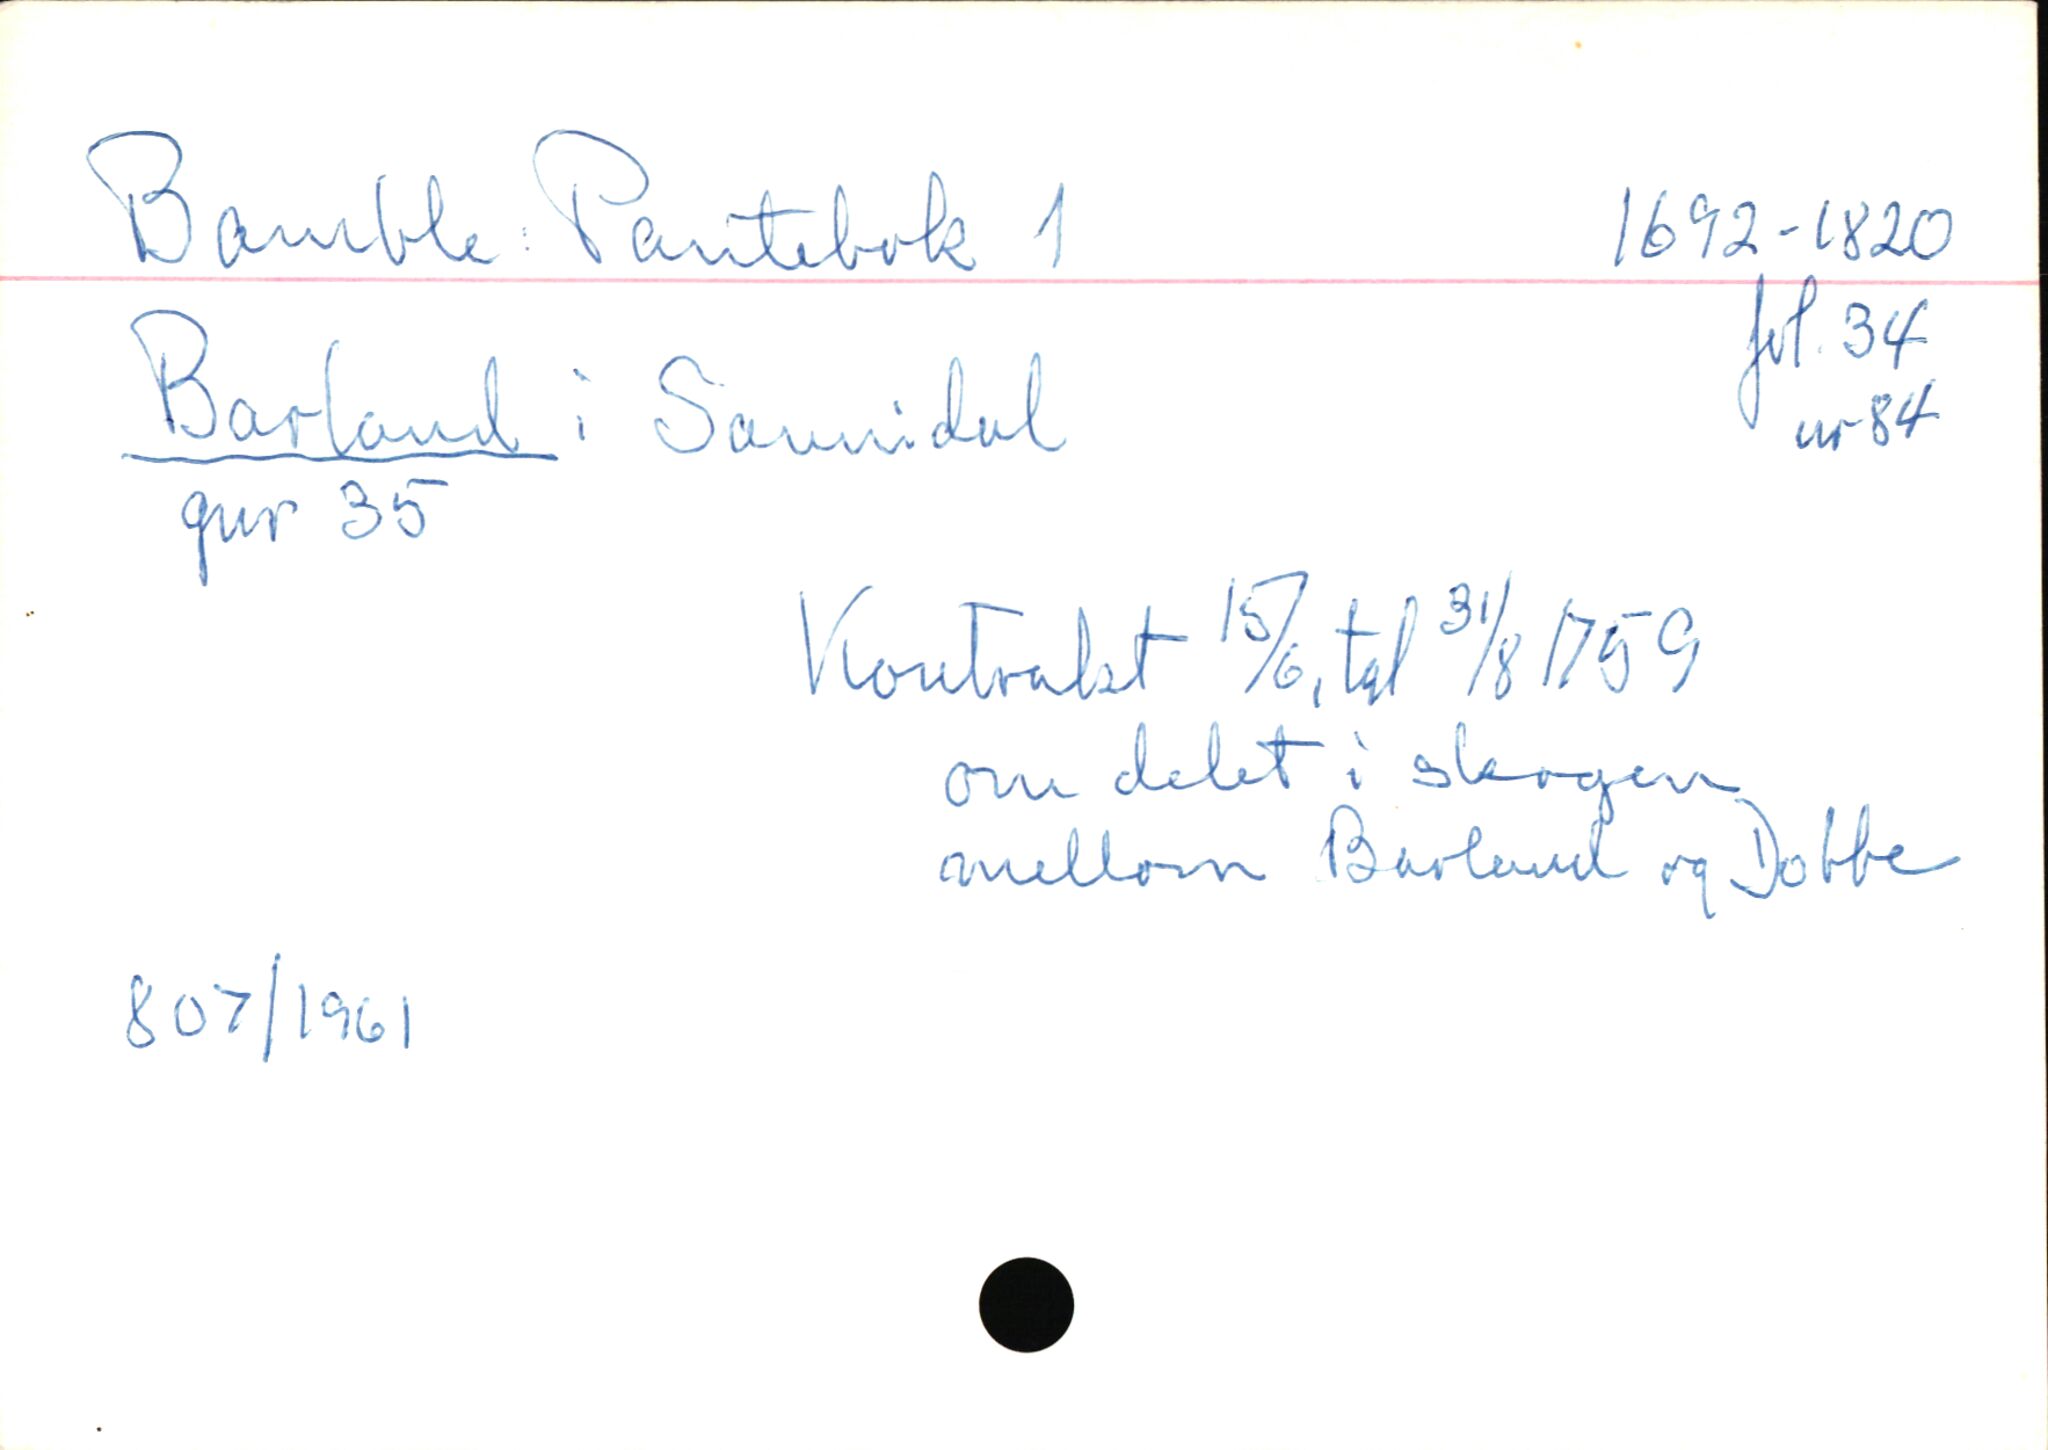 Bamble: Pantebok 1 1692-1820
fol. 34
Barland i Sannidal nr 84
gnr 35
Kontrakt 15/6, tgl 31/8 1759
om delet i skogen
mellom Barland og Dobbe
807/1961